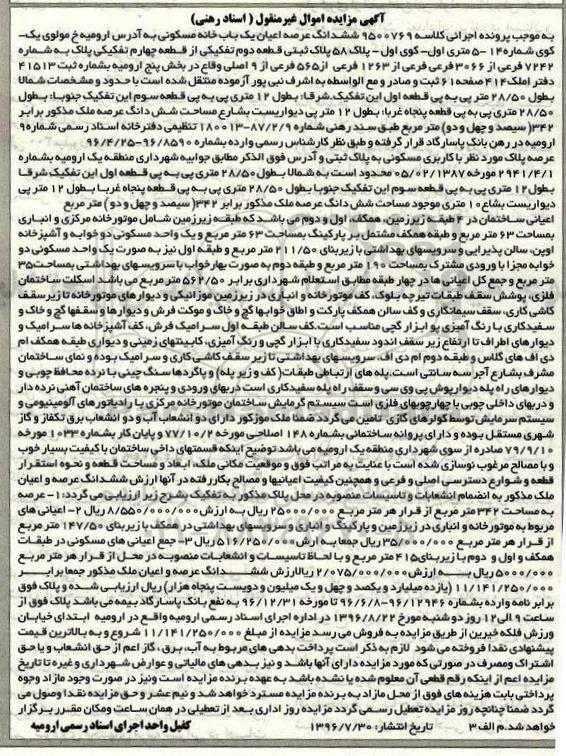 آگهی مزایده اموال غیرمنقول ( اسناد رهنی)
به موجب پرونده اجرائی کلاسه ۹۵۰۰۷۶۹ ششدانگ عرصه اعیان یک باب خانه مسکونی به آدرس ارومیه خ مولوی یک-
کوی شماره ۱۴ -۵ متری اول- کوی اول - پلاک ۵۸ پلاک ثبتی قطعه دوم تفکیکی از قطعه چهارم تفکیکی پلاک به شماره
۷۲۴۲ فرعی از ۳۰۶۶ فرعی فرعی از ۱۲۶۳ فرعی از ۵۶۵ فرعی از ۹ اصلی وقاع در بخش پنج ارومیه بشماره ثبت ۴۱۵۱۳
دفتر املاک ۴۱۴ صفحه ۶۱ ثبت و صادر و مع الواسطه به اشرف نبی پور آزموده منتقل شده است با حدود و مشخصات شمالا
بطول ۲۸/۵۰ متر پی به پی قطعه اول این تفکیک, شرقا: بطول ۱۲ متری پی به پی قطعه سوم این تفکیک جنوبا: بطول
۲۸/۵۰ متری پی به پی قطعه پنجاه غربا: بطول ۱۲ متر پی دیواریست بشارع مساحت شش دانگ عرصه ملک مذکور برابر
۳۴۲( سیصد و چهل و دو) متر مربع طبق سند رهنی شماره ۸۷/۲/۹-۱۸۰۰۱۳ تنظیمی دفترخانه اسناد رسمی شماره ۹
ارومیه در رهن بانک پاسارگاد قرار گرفته و طبق نظر کارشناس رسمی وارده بشماره ۹۶۸۵۹۰-۹۶/۴/۲۵
عرصه پلاک مورد نظر با کاربری مسکونی به پلاک ثبتی و آدرس فوق الذکر مطابق جوابیه شهرداری منطقه یک ارومیه بشماره
۲۹۴۱/۴/۱ مورخه ۰۵/۰۲/۱۳۸۷ محدود است به شمالا بطول ۲۸/۵۰ متری پی به پی قطعه اول این تفکیک شرقا
بطول ۱۲ متری پی به پی قطعه سوم این تفکیک جنوبا بطول ۲۸/۵۰ متری پی به پی قطعه پنجاه غربا بطول ۱۲ متر پی
دیواریست بشاع ۱۰ متری موجود مساحت شش دانگ عرصه ملک مذکور برابر ۳۴۲( سیصد و چهل و دو) متر مربع
اعیانی ساختمان در ۴ طبقه زیرزمین، همکف، اول و دوم می باشد که طبقه زیرزمین شامل موتورخانه مرکزی و انباری
بمساحت ۶۳ متر مربع و طبقه همکف مشتمل بر پارکینگ بمساحت ۶۳ متر مربع و یک واحد مسکونی دو خوابه و آشپزخانه
اوپن، سالن پذیرایی و سرویسهای بهداشتی با زیربنای ۲۱۱/۵۰ متر مربع و طبقه اول نیز به صورت یک واحد مسکونی دو
خوابه مجزا با ورودی مشترک بمساحت ۱۹۰ متر مربع و طبقه دوم به صورت بهارخواب با سرویسهای بهداشتی بمساحت ۳۵
متر مربع و جمع کل اعیانی ها در چهار طبقه مطابق استعلام شهرداری برابر ۵۶۲/۵۰ متر مربع می باشد اسکلت ساختمان
فلزی، پوشش سقف طبقات تیرچه بلوک، کف موتورخانه و انباری در زیرزمین موزائیکی و دیوارهای موتورخانه تا زیر سقف
کاشی کاری، سقف سیمانکاری و کف سالن همکف پارکت و اطاق خوابها گچ و خاک و موکت فرش و دیوارها و سقفها گچ و خاک و
سفیدکاری با رنگ آمیزی پو ابزار گچی مناسب است. کف سالن طبقه اول سرامیک فرش، کف آشپزخانه ها سرامیک و
دیوارهای اطراف تا ارتفاع زیر سقف اندود سفیدکاری با ابزار گچی و رنگ آمیزی، کابینتهای زمینی و دیواری طبقه همکف ام
دی اف های گلاس و طبقه دوم ام دی اف، سرویسهای بهداشتی تا زیر سقف کاشی کاری و سرامیک بوده و نمای ساختمان
مشرف بشارع آجر سه سانتی است. پله های ارتباطی طبقات( کف و زیر پله) و پاگردها سنگ چینی با نرده محافظ چوبی و
دیوارهای راه پله دیوارپوش پی وی سی و سقف راه پله سفیدکاری است دربهای ورودی و پنجره های ساختمان آهنی نرده دار
و دربهای داخلی چوبی با چهارچوبهای فلزی است سیستم گرمایش ساختمان موتورخانه مرکزی با رادیاتور های آلومینیومی و
سیستم سرمایش توسط کولرهای گازی تامین می گردد ضمنا ملک موزکور دارای دو انشعاب آب و دو انشعاب برق تکفاز و گاز
شهری مستقل بوده و دارای پروانه ساختمانی بشماره ۱۴۸ اصلاحی مورخه ۷۷/۱۰/۲ و پایان کار بشماره ۱۰۳۳ مورخه
۷۹/۹/۱۰ صادره از سوی شهرداری منطقه یک ارومیه می باشد توضیح اینکه قسمتهای داخی ساختمان با کیفیت بسیار خوب
و با مصالح مرغوب نوسازی شده است با عنایت به مراتب فوق و موقعیت مکانی ملک، ابعاد و مساحت قطعه و نحوه استقرار
قطعه و شوارع دسترسی اصلی و فرعی و همچنین کیفیت اعیانیها و مصالح بکار رفته در آنها ارزش ششدانگ عرصه و اعیان
ملک مذکور به انضمام انشعابات و تاسیسات منصوبه در محل پلاک مذکور به تفکیک بشرح زیر ارزیابی می گردد: ۱- عرصه
به مساحت ۳۴۲ متر مربع از قرار هر متر مربع ۲۵۰۰۰۰۰۰ ریال به ارزش ۸/۵۵۰/۰۰۰/۰۰۰ ریال ۲- اعیانی های
مربوط به موتورخانه و انباری در زیرزمین و پارکینگ و انباری و سرویسهای بهداشتی در همکف با زیربنای ۱۴۷/۵۰ متر مربع
از قرار هر متر مربع ۳۵/۰۰۰/۰۰۰ ریال جمعا به ارش ۵۱۶/۲۵۰/۰۰۰ ریال ۳- جمع اعیانی های مسکونی در طبقات
همکف و اول و دوم با زیربنای ۴۱۵ متر مربع و با لحاظ تاسیسات و انشعابات منصوبه در محل از قرار هر متر مربع
۵۰۰۰/۰۰۰ ریال به ارزش ۲/۰۷۵/۰۰۰/۰۰۰ ریال ارزش ششدانگ عرصه و اعیان ملک مذکور جمعا برابر
۱۱/۱۴۱/۲۵۰/۰۰۰ (یازده میلیارد و یکصد و چهل و یک میلیون و دویست پنجاه هزار) ریال ارزیابی شده و پلاک فوق
برابر نامه وارده بشماره ۹۶۱۲۹۴۶-۹۶/۶/۸ تا مورخه ۹۶/۱۲/۳۱ به نفع بانک پاسارگاد بیمه می باشد پلاک فوق از
ساعت ۹ الی ۱۲ روز دو شنبه مورخ ۱۳۹۶/۸/۲۲ در اداره اجرای اسناد رسمی ارومیه واقع در ارومیه ابتدای خیابان
ورزش فلکه خیرین از طریق مزایده به فروش می رسد مزایده از مبلغ ۱۱/۱۴۱/۲۵۰/۰۰۰ شروع و به بالاترین قیمت
پیشنهادی نقدا فروخته می شود لازم به ذکر است پرداخت بدهی های مربوط به آب، برق، گاز اعم از حق انشعاب و یا حق
اشتراک و مصرف در صورتی که مورد مزایده دارای آنها باشد و نیز بدهی های مالیاتی و عوارض شهرداری و غیره تا تاریخ
مزایده اعم از اینکه رقم قطعی آن معلوم شده یا نشده باشد به عهده برنده مزایده است ونیز در صورت وجود مازاد وجوه
پرداختی بابت هزینه های فوق از محل مازاد به برنده مزایده مسترد خواهد شد و نیم عشر و حق مزایده نقدا وصول می
گردد ضمنا چنانچه روز مزایده تعطیل رسمی گردد مزایده روز اداری بعد از تعطیلی در همان ساعت و مکان مقرر برگزار
خواهد شد. م الف ۳ تاریخ انتشار: ۱۳۹۶/۷/۳۰ کفیل واحد اجرای اسناد رسمی ارومیه